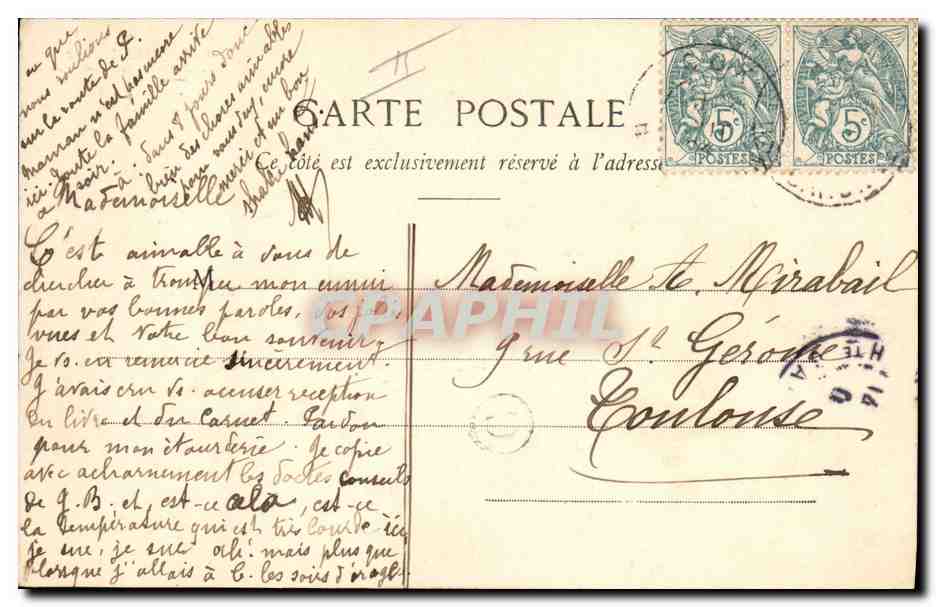 CARTE POSTALE
Ce côté est exclusivement réservé à l'adresse
5c
POSTES
5c
POSTES
Mademoiselle A. Mirabail
9 rue St Gérome
Toulouse
CPAPHIL
Mademoiselle
C'est aimable à vous de
chercher à tromper mon ennui
par vos bonnes paroles, vos jolies
vues et votre bon souvenir
Je vs en remercie sincèrement.
J'avais cru vs accuser reception
du livre et du carnet. Pardon
pour mon étourderie. Je copie
avec acharnement les doctes conseils
de J. B. et, est-ce cela, est-ce
la température qui est très lourde ici
je sue, je sue oh! mais plus que
lorsque j'allais à les soirs d'orage
ou que
nous voulions
sur la route de P.
maman n'est pas encore
ici. Toute la famille arrive
à . Dans 8 jours donc
bien des choses aimables
pour vous deux, encore
merci et un bon
shake hand